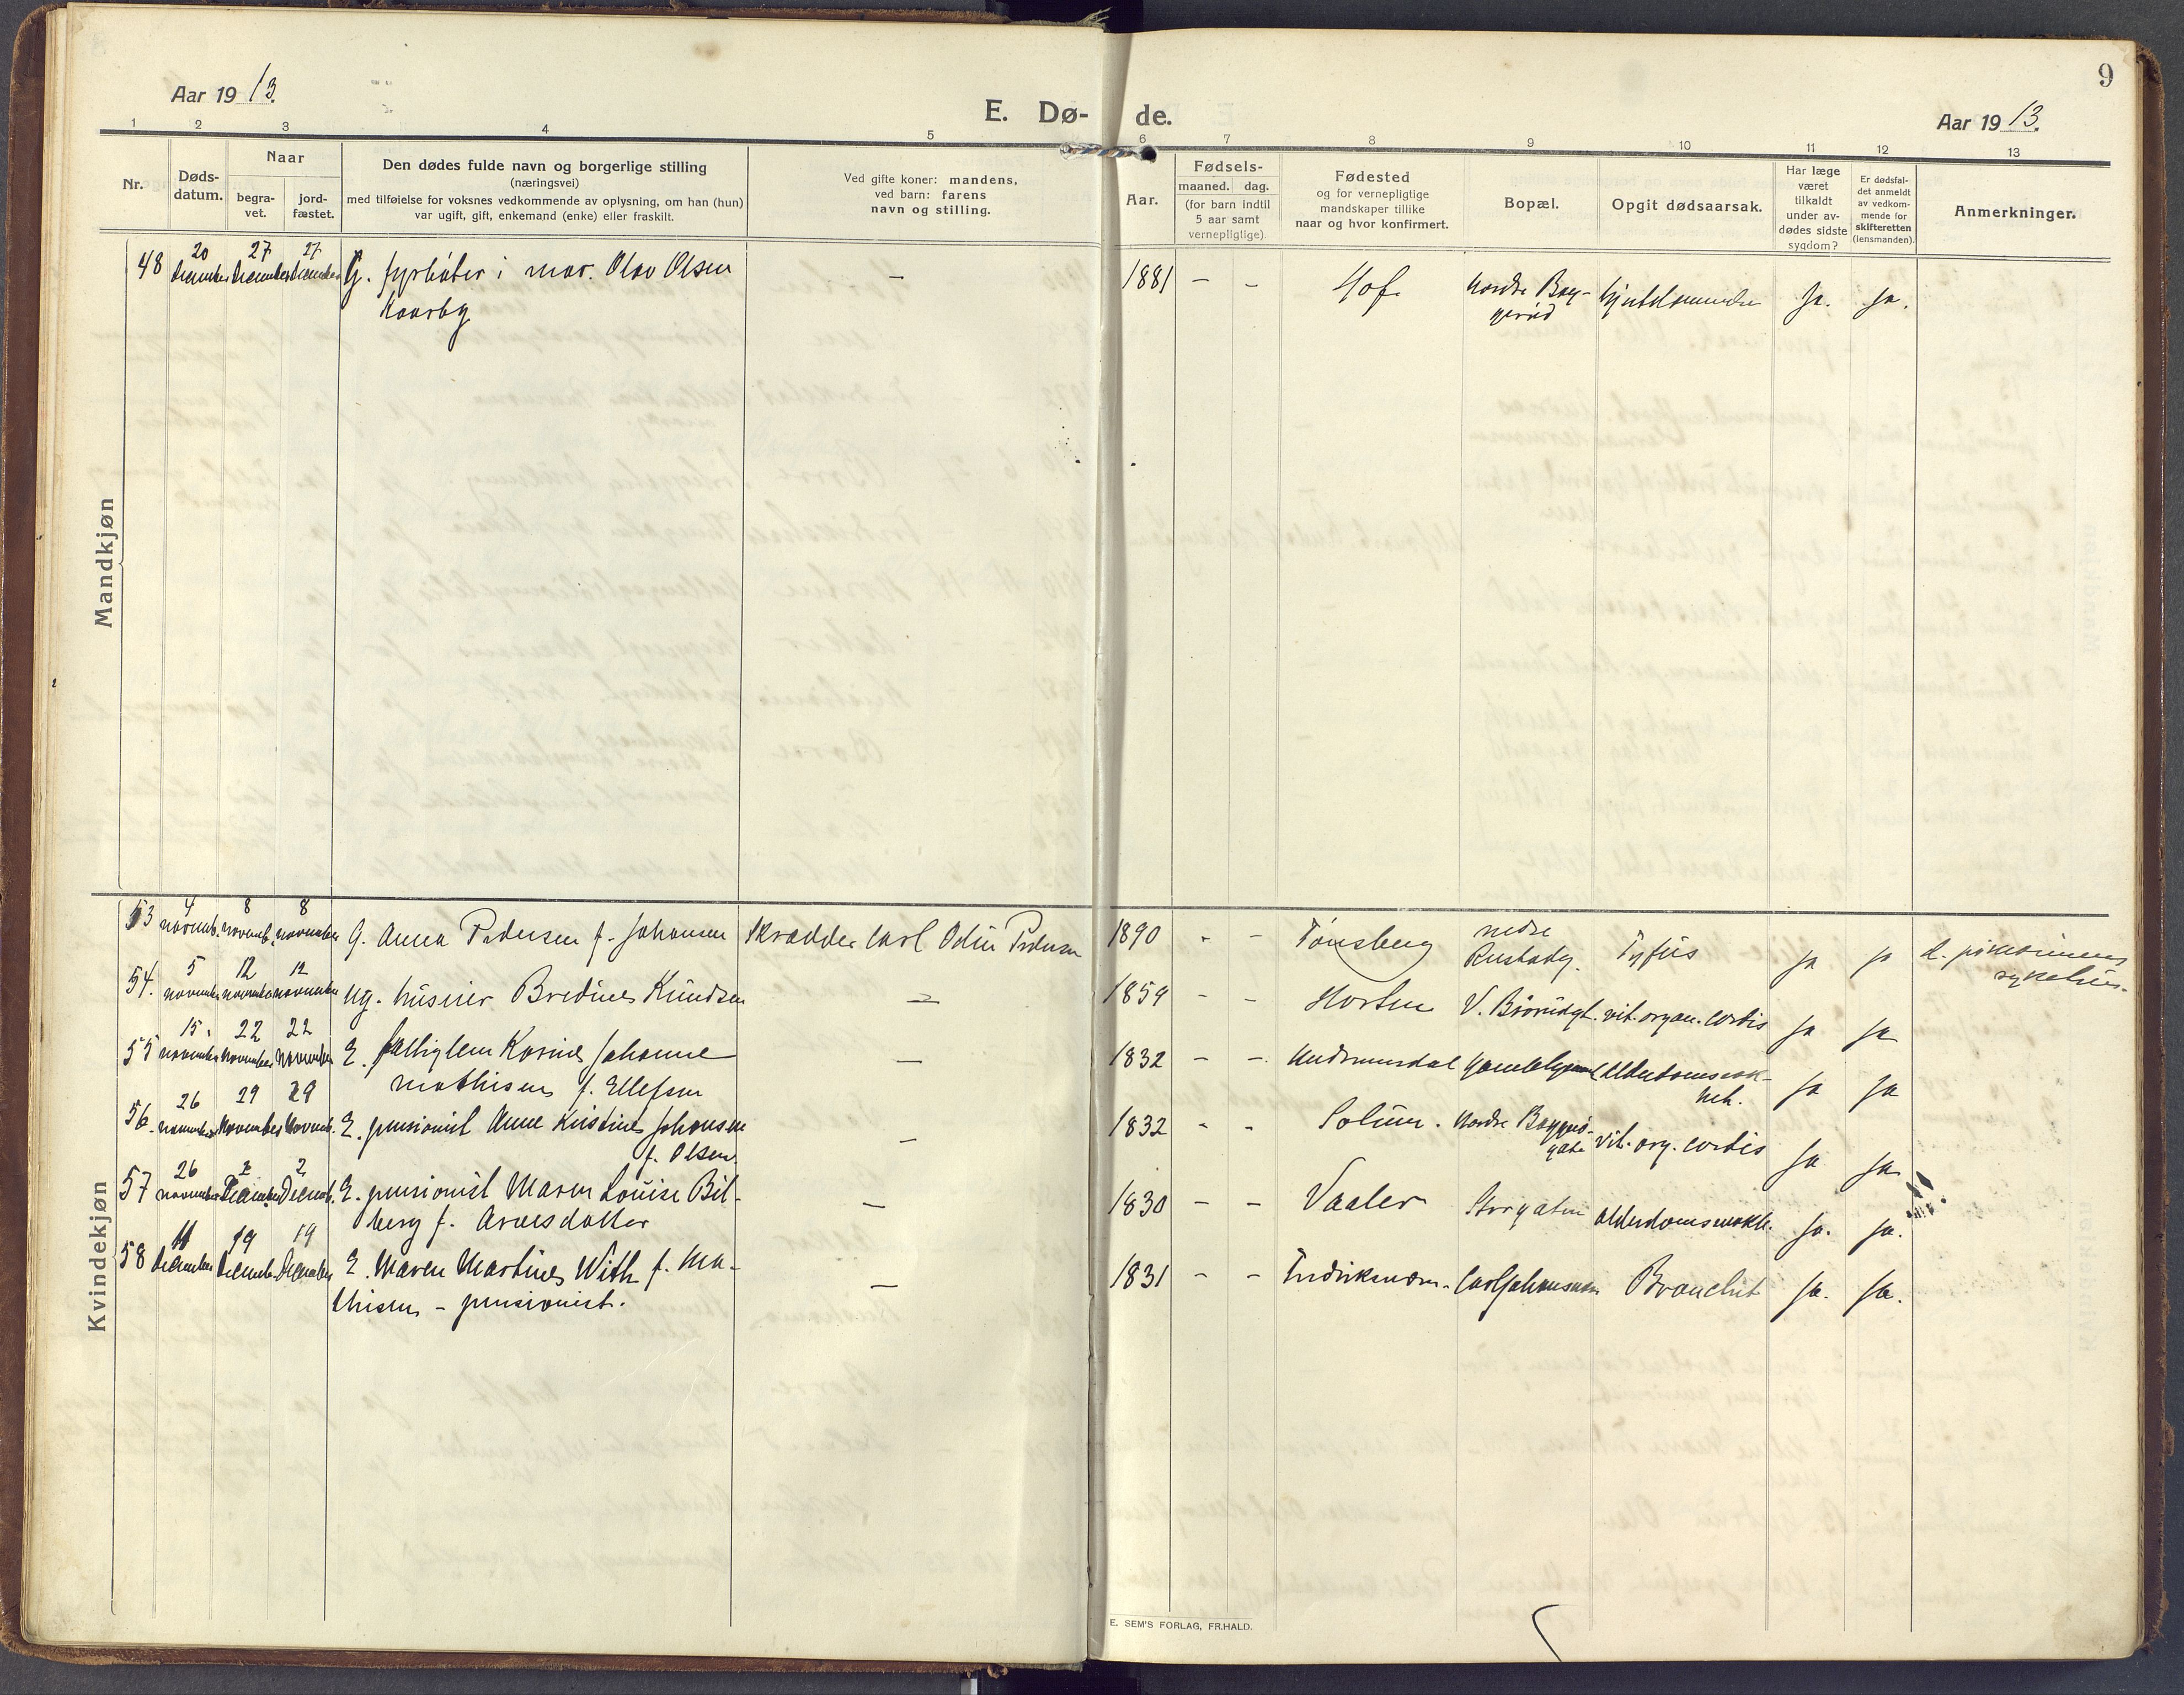 Aar 1913.
E. Dø- de.
Aar 1913.
9
1 2 3 4 5 6 7 8 9 10 11 12 13
Nr.
Døds-
datum.
Naar
begra-
vet.
jord-
fæstet.
Den dødes fulde navn og borgerlige stilling
(næringsvei)
med tilføielse for voksnes vedkommende av oplysning, om han (hun)
var ugift, gift, enkemand (enke) eller fraskilt.
Ved gifte koner: mandens,
ved barn: farens
navn og stilling.
Aar.
Fødsels-
maaned. dag.
(for barn indtil
5 aar samt
vernepligtige)
Fødested
og for vernepligtige
mandskaper tillike
naar og hvor konfirmert.
Bopæl.
Opgit dødsaarsak.
Har læge
været
tilkaldt
under av-
dødes sidste
sygdom?
Er dødsfal-
det anmeldt
av vedkom-
mende for
skifteretten
(lensmanden).
Anmerkninger.
Mandkjøn
20 27 27
48 december december december G. fyrbøter i mar. Olav Olsen — 1881 - - Hof. Nordre Bag-
Kaarby gerud Ja. Ja.
Kvindekjøn
4 8 8
53 novemb. novemb. november G. Anna Pedersen f. Johansen Skrædder Carl Odin Pedersen 1890 - - Tønsberg nedre
Rustadg. Tyfus ja ja
sykehus.
5 12 12
54. november november november ug. huseier Bredine Knudsen — 1859 - - Horten V. Braarudgt. vit. organ. cordis ja ja
15. 22 22
55 november November November E. fattiglem Karine Johanne — 1832 - - Alderdomssvak-
Mathisen f. Ellefsen het. ja ja
26 29 29
56. november November Novemb. E. pensionist Anne Kristine Johansen — 1832 - - Solum. Nordre Baggerø-
f. Olsen. gate vit. org. cordis ja ja
26 2 2
57 november December Decemb. E. pensionist Maren Louise Bil- — 1830 - - Vaaler Storgaten alderdomssvakh. ja. ja.
berg f. Arnesdatter
11 19 19
58 december Decemb. December E. Maren Martine With f. Ma- — 1831 - - Fredriksværn. Carljohansvern Bronchit ja. ja.
thisen - pensionist.
E. SEM'S FORLAG, FR.HALD.